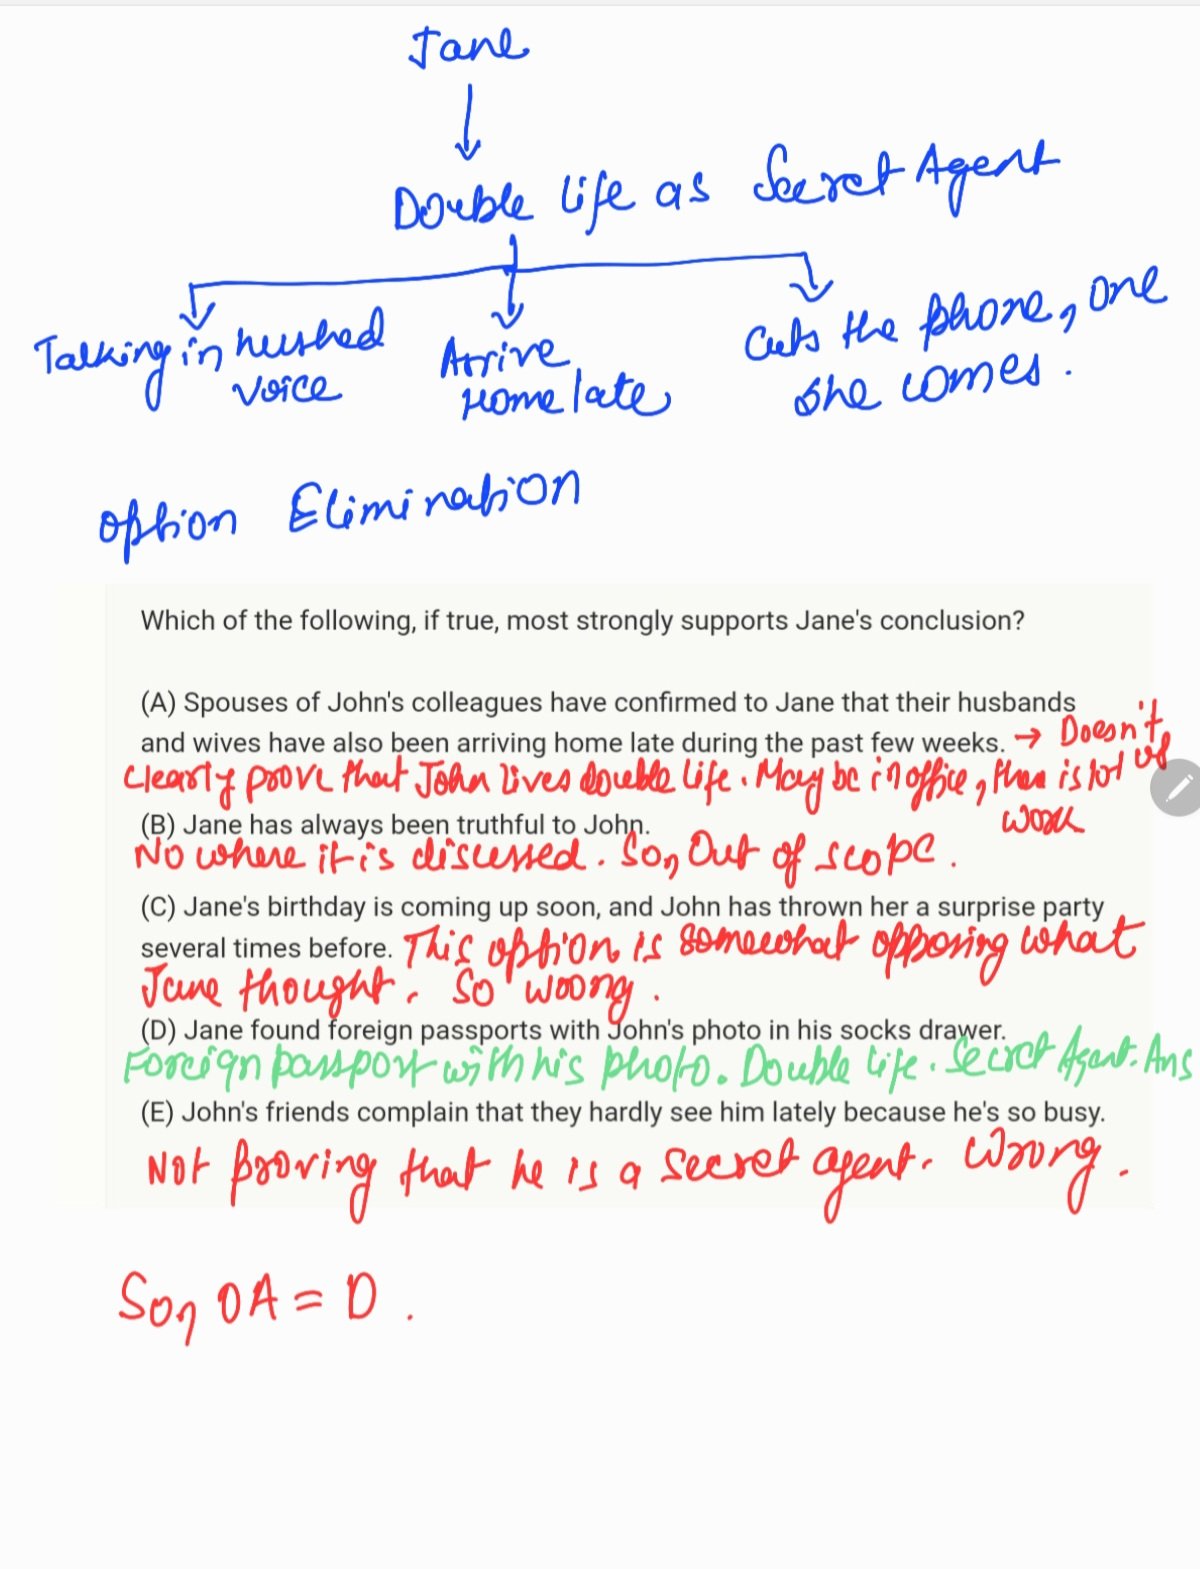 Jane
Double life as Secret Agent
Talking in hushed voice
Arrive Home late
Cuts the phone, one she comes.
Option Elimination
Which of the following, if true, most strongly supports Jane's conclusion?
(A) Spouses of John's colleagues have confirmed to Jane that their husbands
and wives have also been arriving home late during the past few weeks. → Doesn't
clearly prove that John lives double life. May be in office, there is lot of
work
(B) Jane has always been truthful to John.
No where it is discussed. So, Out of scope.
(C) Jane's birthday is coming up soon, and John has thrown her a surprise party
several times before. This option is somewhat opposing what
Jane thought. So wrong.
(D) Jane found foreign passports with John's photo in his socks drawer.
Foreign passport with his photo. Double life. Secret Agent. Ans
(E) John's friends complain that they hardly see him lately because he's so busy.
Not proving that he is a secret agent. Wrong.
So, OA = D.